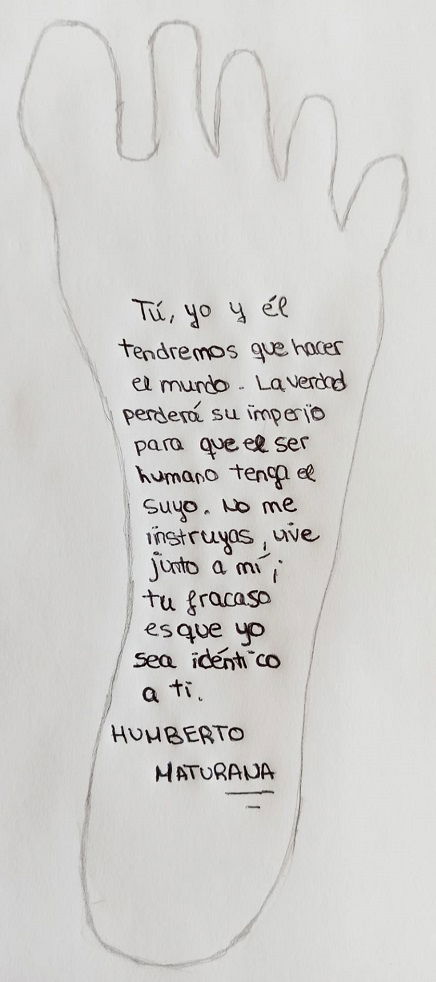 Tú, yo y él
tendremos que hacer
el mundo. La verdad
perderá su imperio
para que el ser
humano tenga el
suyo. No me
instruyas, vive
junto a mí;
tu fracaso
es que yo
sea idéntico
a ti.
HUMBERTO
MATURANA